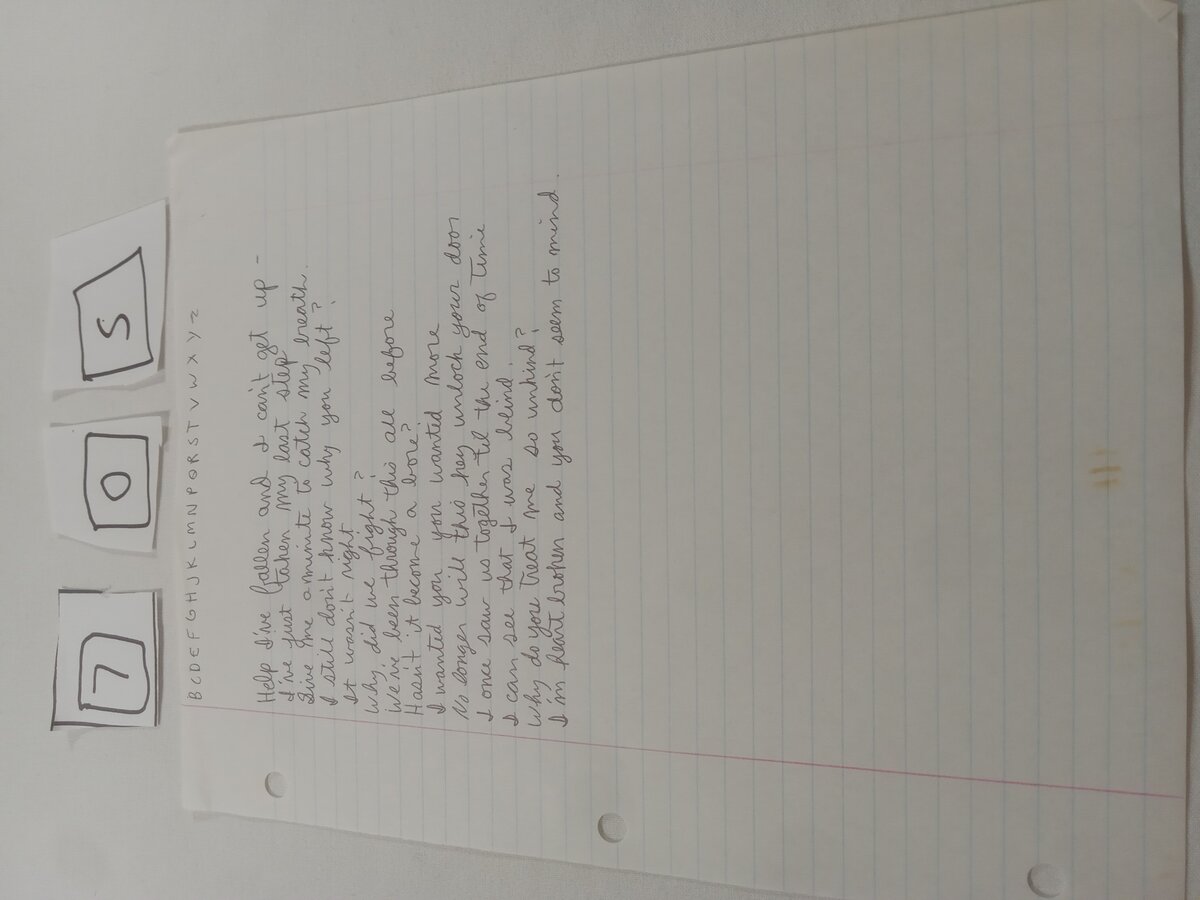 7 O S
B C D E F G H J K L M N P Q R S T V W X Y Z
Help I've fallen and I can't get up -
I've just taken my last step
Give me a minute to catch my breath.
I still don't know why you left?
It wasn't right!
Why did we fight?
We've been through this all before
Hasn't it become a bore?
I wanted you you wanted more
No longer will this key unlock your door
I once saw us together til the end of time
I can see that I was blind.
Why do you treat me so unkind?
I'm heart broken and you don't seem to mind.